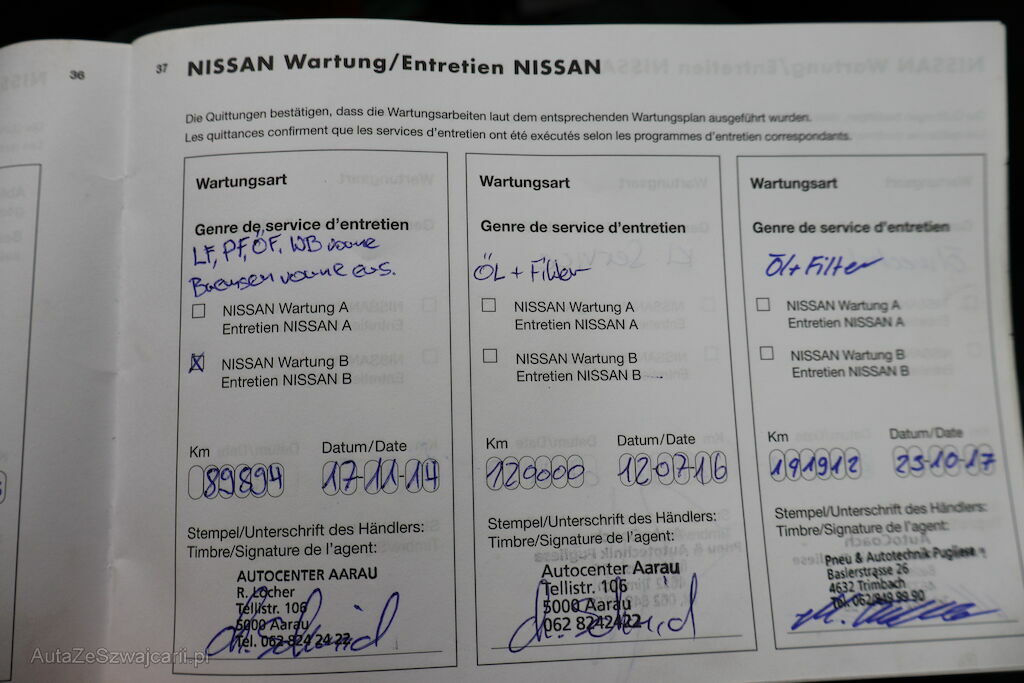 36
37 NISSAN Wartung/Entretien NISSAN
Die Quittungen bestätigen, dass die Wartungsarbeiten laut dem entsprechenden Wartungsplan ausgeführt wurden.
Les quittances confirment que les services d'entretien ont été exécutés selon les programmes d'entretien correspondants.
Wartungsart
Genre de service d'entretien
LF, PF, ÖF, WB vorne
Bremsen vorne ers.
NISSAN Wartung A
Entretien NISSAN A
X NISSAN Wartung B
Entretien NISSAN B
Km Datum/Date
89894 17-11-14
Stempel/Unterschrift des Händlers:
Timbre/Signature de l'agent:
AUTOCENTER AARAU
R. Locher
Tellistr. 106
5000 Aarau
Tel. 062 824 24 22
Wartungsart
Genre de service d'entretien
ÖL + Filter
NISSAN Wartung A
Entretien NISSAN A
NISSAN Wartung B
Entretien NISSAN B
Km Datum/Date
120000 12 07 16
Stempel/Unterschrift des Händlers:
Timbre/Signature de l'agent:
Autocenter Aarau
Tellistr. 106
5000 Aarau
062 8242422
Wartungsart
Genre de service d'entretien
Öl + Filter
NISSAN Wartung A
Entretien NISSAN A
NISSAN Wartung B
Entretien NISSAN B
Km Datum/Date
191912 25-10-17
Stempel/Unterschrift des Händlers:
Timbre/Signature de l'agent:
Pneu & Autotechnik Pugliese
Baslerstrasse 26
4632 Trimbach
Tel. 062/849 99 90
AutaZeSzwajcarii.pl